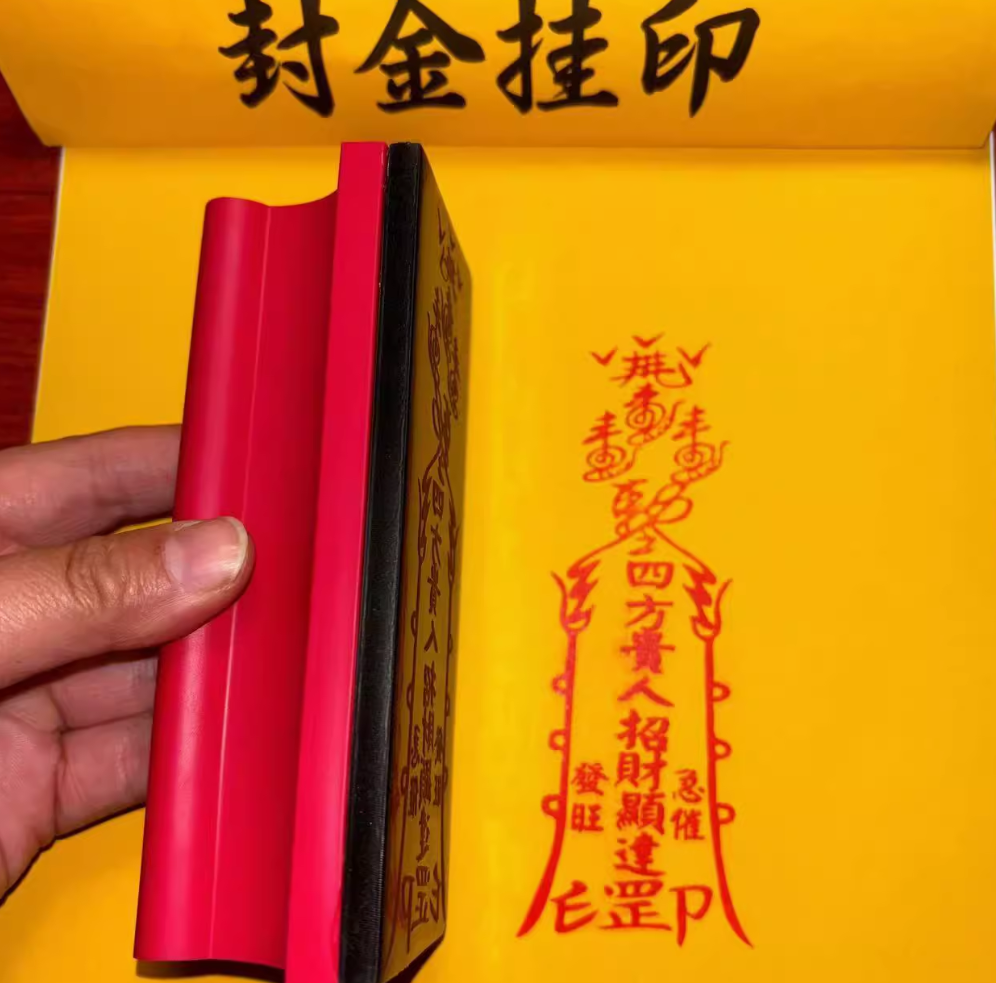 封金挂印
四方貴人招財顯達罡
急催
發旺